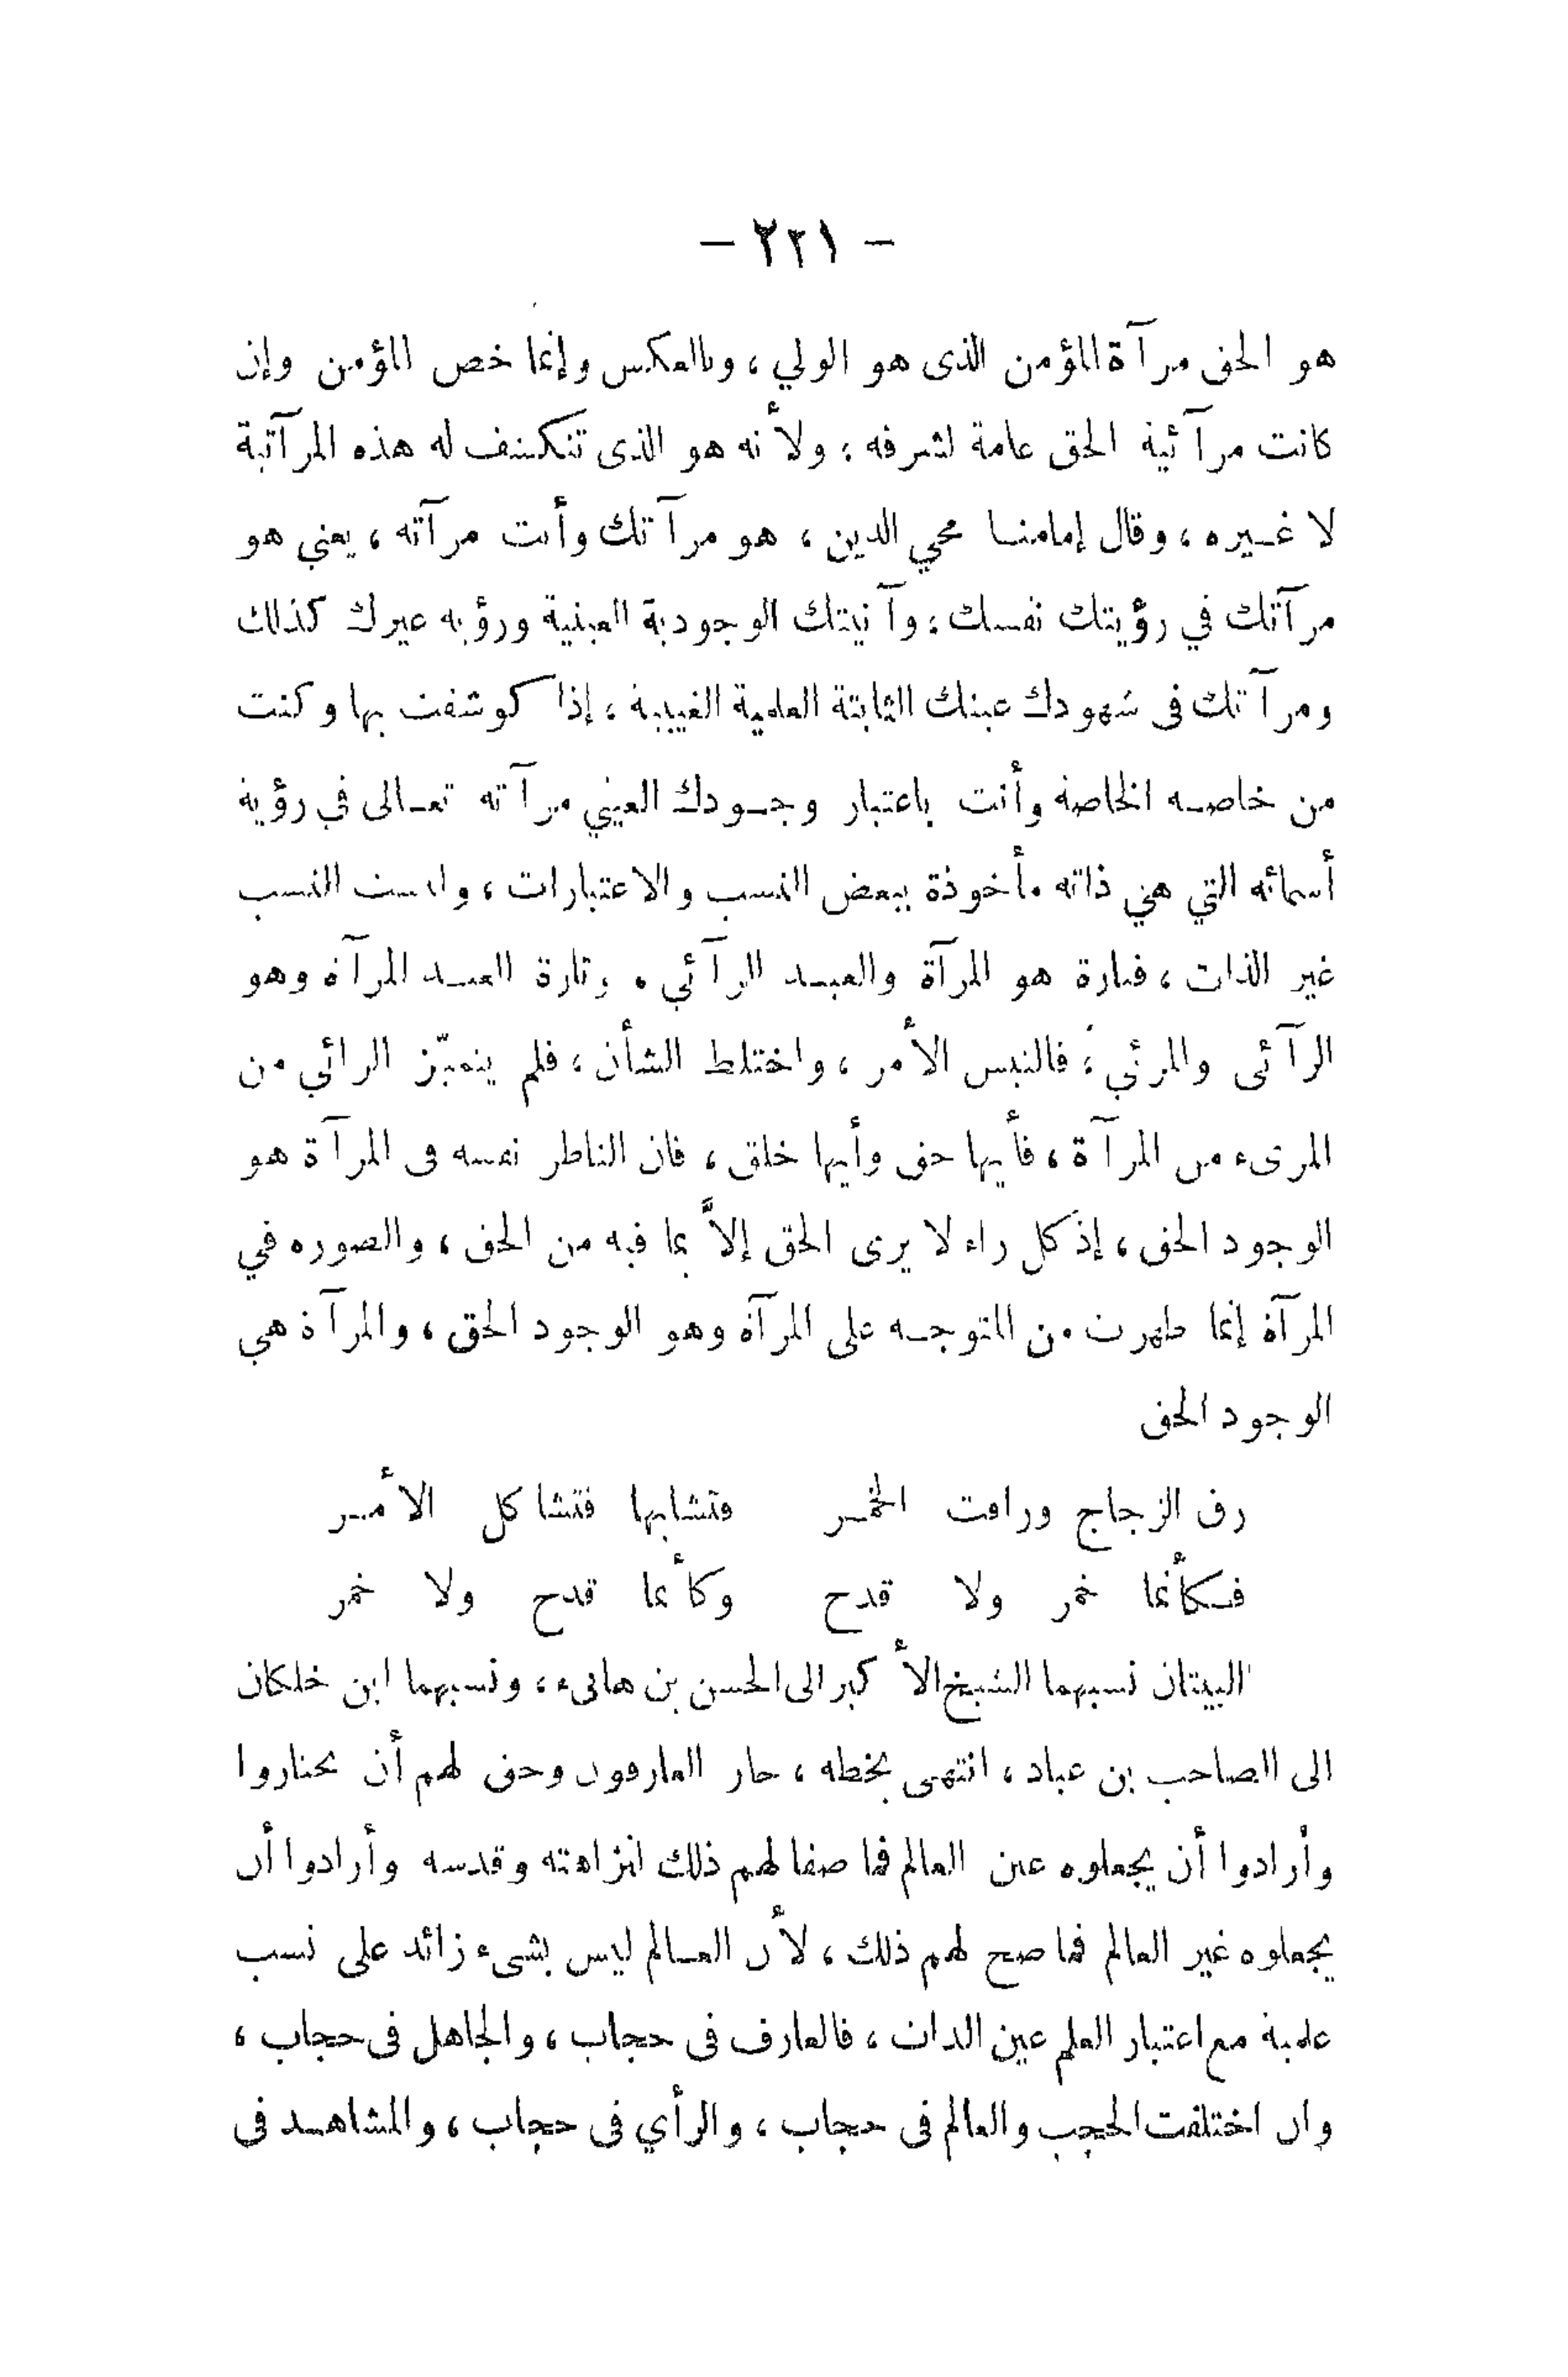 - ٢٢١ -
هو الحق مرآة المؤمن الذى هو الولي ، وبالعكس وإنما خص المؤمن وإن
كانت مرآئية الحق عامة لشرفه ؛ ولأنه هو الذى تنكشف له هذه المرآتية
لا غيره ، وقال إمامنا محي الدين ، هو مرآتك وأنت مرآته ، يعني هو
مرآتك في رؤيتك نفسك ؛ وآنيتك الوجودية العينية ورؤيه غيرك كذلك
ومرآتك فى شهودك عينك الثابتة العلمية الغيبية ، إذا كوشفت بها وكنت
من خاصه الخاصة وأنت باعتبار وجودك العيني مرآته تعالى في رؤية
أسمائه التي هي ذاته مأخوذة ببعض النسب والاعتبارات ، وليست النسب
غير الذات ، فتارة هو المرآة والعبد الرآئي . وتارة العبد المرآة وهو
الرآئى والمرئي ، فالتبس الأمر ، واختلط الشأن ، فلم يتميّز الرائي من
المرىء من المرآة ، فأيها حق وأيها خلق ، فان الناظر نفسه فى المرآة هو
الوجود الحق ، إذ كل راء لا يرى الحق إلاَّ بما فيه من الحق ، والصوره في
المرآة إنما ظهرت من المتوجه على المرآة وهو الوجود الحق ، والمرآة هي
الوجود الحق
رق الزجاج وراقت الخمر فتشابها فتشاكل الأمر
فكأنما خمر ولا قدح وكأنما قدح ولا خمر
البيتان نسبهما الشيخ الأكبر الى الحسن بن هانىء ، ونسبهما ابن خلكان
الى الصاحب بن عباد ، انتهى بخطه ، حار العارفون وحق لهم أن يحتاروا
وأرادوا أن يجعلوه عين العالم فما صفا لهم ذلك لنزاهته وقدسه وأرادوا أن
يجعلوه غير العالم فما صح لهم ذلك ، لأن العالم ليس بشىء زائد على نسب
علمية مع اعتبار العلم عين الذات ، فالعارف فى حجاب ، والجاهل فى حجاب ،
وان اختلفت الحجب والعالم فى حجاب ، والرأي فى حجاب ، والمشاهد فى